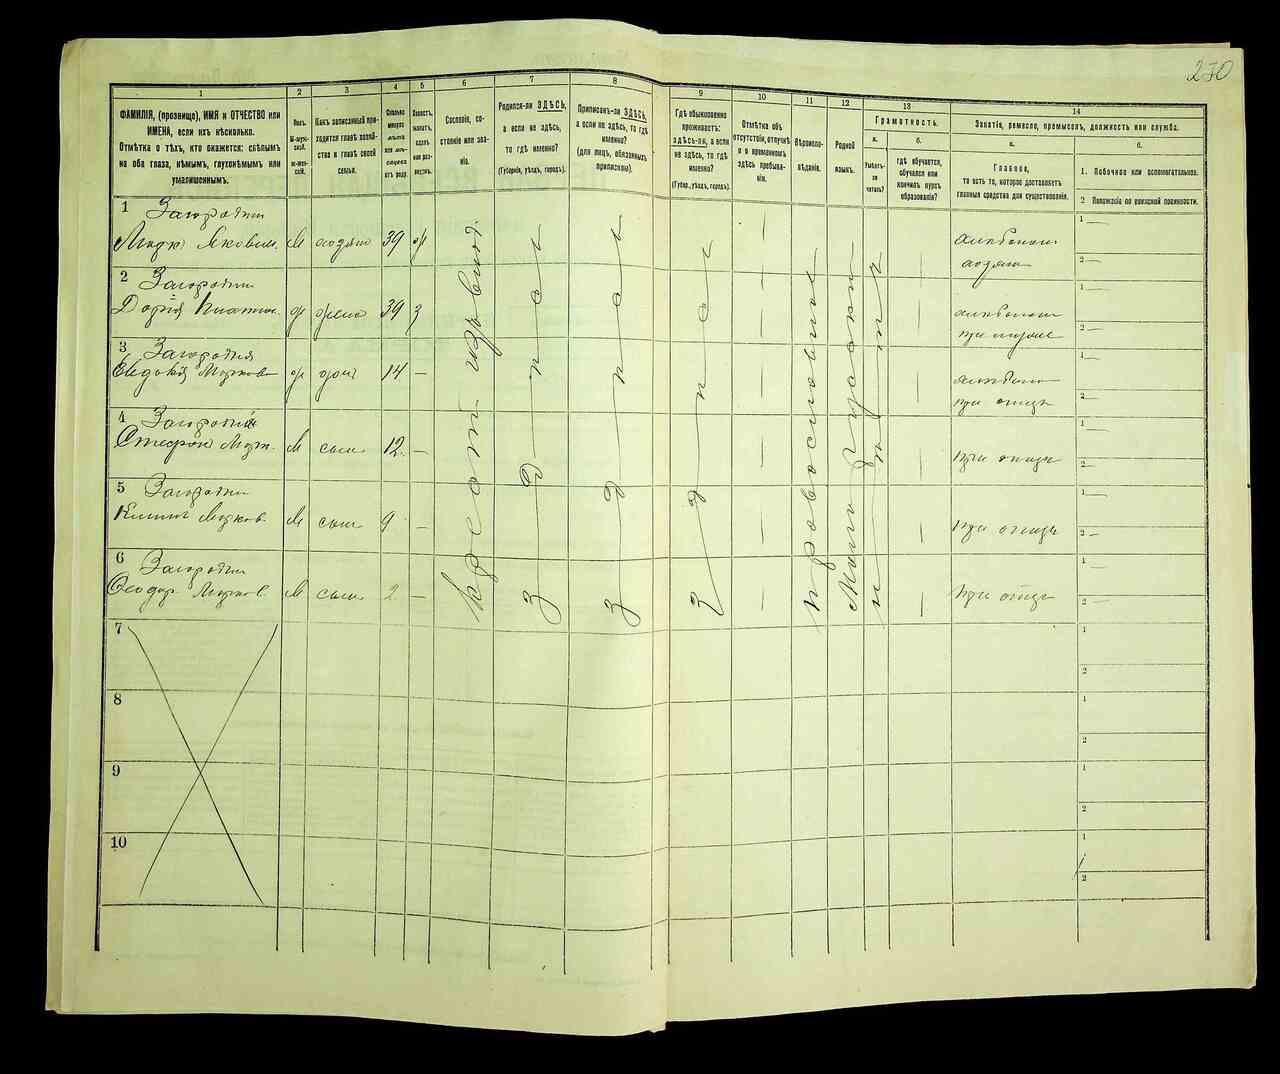 270
1 2 3 4 5 6 7 8 9 10 11 12 13 14
ФАМИЛІЯ, (прозвище), ИМЯ и ОТЧЕСТВО или
ИМЕНА, если ихъ нѣсколько.
Отмѣтка о тѣхъ, кто окажется: слѣпымъ
на оба глаза, нѣмымъ, глухонѣмымъ или
умалишеннымъ.
Полъ.
М-мужской.
Ж-женскій.
Какъ записанный приходится главѣ хозяйства и главѣ своей семьи.
Сколько минуло лѣтъ или мѣсяцевъ отъ роду.
Холостъ, женатъ, вдовъ или разведенъ.
Сословіе, состояніе или званіе.
Родился-ли ЗДѢСЬ,
а если не здѣсь,
то гдѣ именно?
(Губернія, уѣздъ, городъ).
Приписанъ-ли ЗДѢСЬ,
а если не здѣсь, то гдѣ
именно?
(для лицъ, обязанныхъ
припискою).
Гдѣ обыкновенно
проживаетъ:
здѣсь-ли, а если
не здѣсь, то гдѣ
именно?
(Губер., уѣздъ, городъ).
Отмѣтка объ
отсутствіи, отлучкѣ
и о временномъ
здѣсь пребываніи.
Вѣроисповѣданіе.
Родной
языкъ.
Грамотность.
а.
Умѣетъ-ли
читать?
б.
гдѣ обучается,
обучался или
кончилъ курсъ
образованія?
Занятіе, ремесло, промыселъ, должность или служба.
а.
Главное,
то есть то, которое доставляетъ
главныя средства для существованія.
б.
1. Побочное или вспомогательное.
2 Положеніе по воинской повинности.
1 Загородній
Марко Яковлев. М хозяинъ 39 ж
хлѣбопаш.
хозяинъ
1 —
2 —
2 Загородняя
Дарія ж жена 39 з
хлѣбопаш.
при мужѣ
1 —
2 —
3 Загородняя
Евдокія Маркова ж дочь 14 —
при отцѣ
1 —
2 —
4 Загородній
Стефан Марк. М сынъ 12 —
при отцѣ
1 —
2 —
5 Загородній
Марков. М сынъ 9 —
при отцѣ
1 —
2 —
6 Загородній
Феодор Марков. М сынъ 2 —
при отцѣ
1
2 —
Здѣсь
Здѣсь
Здѣсь
православное
7
1
2
8
1
2
9
1
2
10
1
2